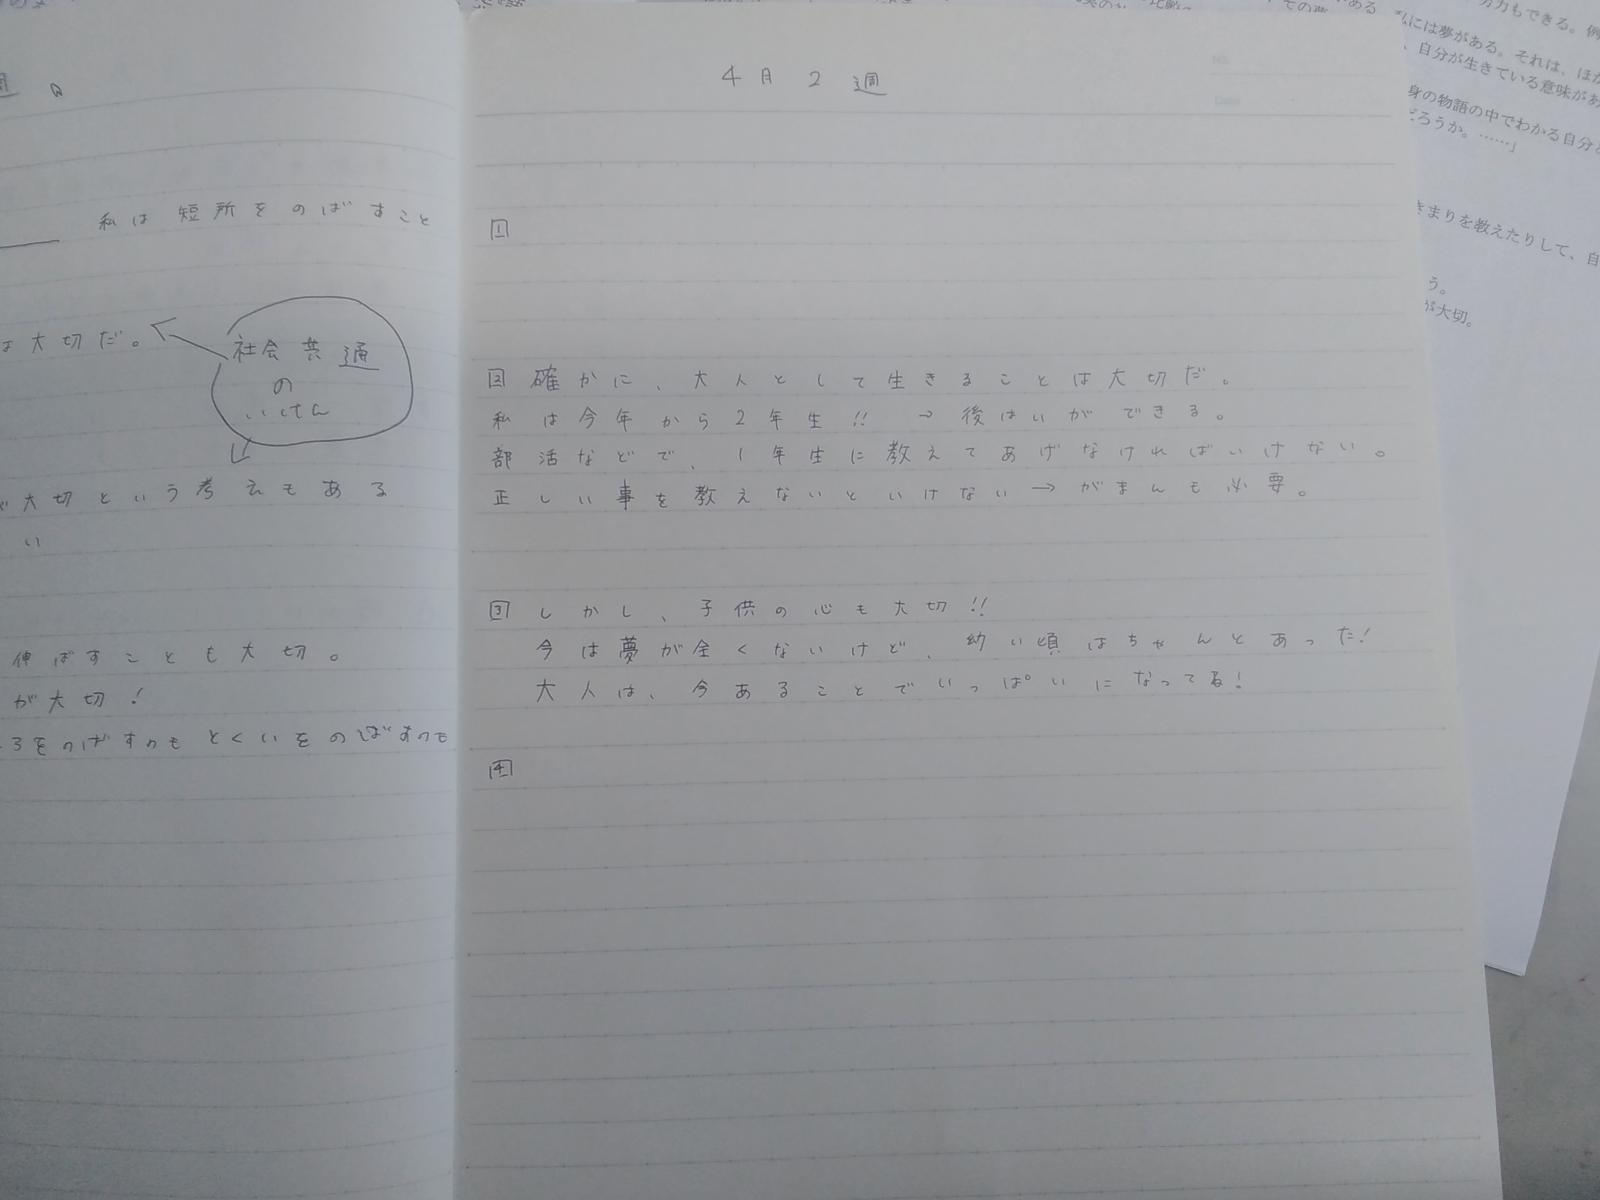 私は短所をのばすこと
は大切だ。
社会共通
の
いけん
が大切という考えもある
い
伸ばすことも大切。
が大切!
ろをのばすのもとくいをのばすのも
4月2週
1
2 確かに、大人として生きることは大切だ。
私は今年から2年生!! → 後はいができる。
部活などで、1年生に教えてあげなければいけない。
正しい事を教えないといけない→がまんも必要。
3 しかし、子供の心も大切!!
今は夢が全くないけど、幼い頃はちゃんとあった!
大人は、今あることでいっぱいになってる!
4
努力もできる。例
私には夢がある。それは、ほか
、自分が生きている意味があ
身の物語の中でわかる自分
だろうか。……」
きまりを教えたりして、自
う。
が大切。